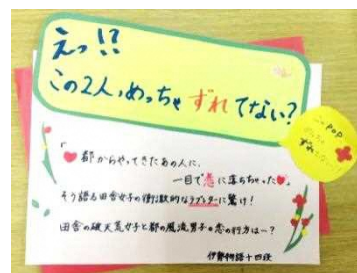 えっ!?
この2人、めっちゃずれてない?
このPOP
ずれ
「♥都からやってきたあの人に、
一目で恋に落ちちゃった♥」
そう語る田舎女子の衝撃的なラブレターに驚け!
田舎の破天荒女子と都の風流男子の恋の行方は…?
伊勢物語十四段